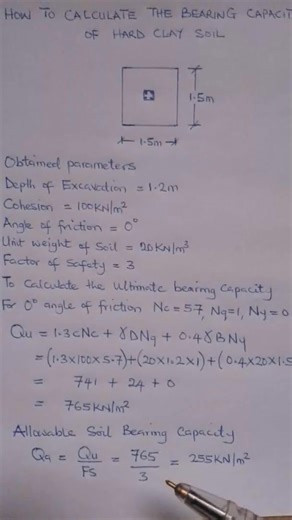 HOW TO CALCULATE THE BEARING CAPACIT
OF HARD CLAY SOIL
1.5m
1.5m
Obtained parameters
Depth of Excavation = 1.2m
Cohesion = 100KN/m²
Angle of friction = 0°
Unit weight of Soil = 20KN/m³
Factor of Safety = 3
To Calculate the Ultimate bearing Capacity
For 0° angle of friction Nc=5.7, Nq=1, Nγ=0
Qu = 1.3cNc + γDNq + 0.4γBNγ
= (1.3×100×5.7)+(20×1.2×1)+(0.4×20×1.5
= 741 + 24 + 0
= 765KN/m²
Allowable Soil Bearing Capacity
Qa = Qu/FS = 765/3 = 255KN/m²